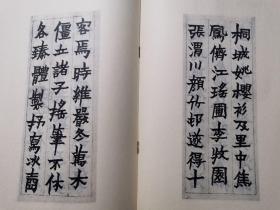 桐城姚櫻衫及里中焦
鳳儔江瑤圃李牧園
張渭川顏竹邨遂得十
客焉時維嚴冬萬木
僵立諸子搖筆不休
各臻體製抒寫冰